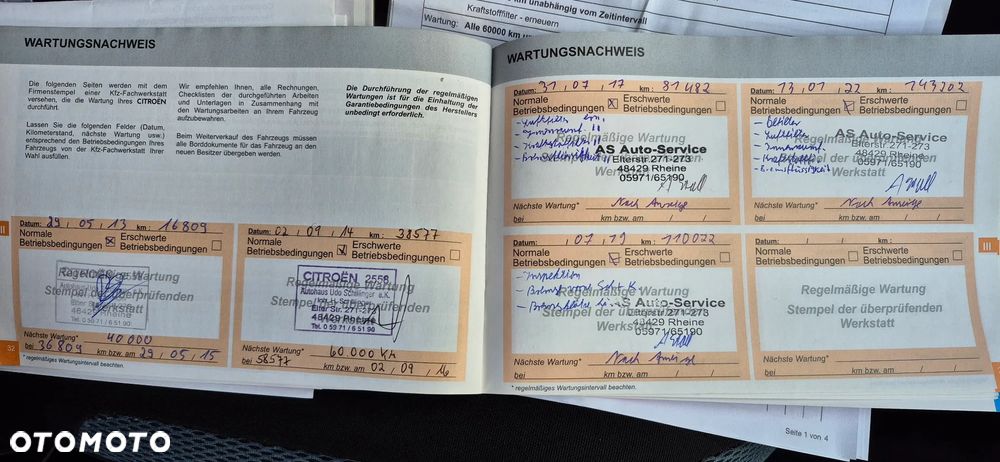 km unabhängig vom Zeitintervall
Kraftstofffilter - erneuern
Wartung: Alle 60000 km un
WARTUNGSNACHWEIS
Die folgenden Seiten werden mit dem
Firmenstempel einer Kfz-Fachwerkstatt
versehen, die die Wartung Ihres CITROËN
durchführt.
Lassen Sie die folgenden Felder (Datum,
Kilometerstand, nächste Wartung usw.)
entsprechend den Betriebsbedingungen Ihres
Fahrzeugs von der Kfz-Fachwerkstatt Ihrer
Wahl ausfüllen.
Wir empfehlen Ihnen, alle Rechnungen,
Checklisten der durchgeführten Arbeiten
und Unterlagen in Zusammenhang mit
den Wartungsarbeiten an Ihrem Fahrzeug
aufzubewahren.
Beim Weiterverkauf des Fahrzeugs müssen
alle Borddokumente für das Fahrzeug an den
neuen Besitzer übergeben werden.
Die Durchführung der regelmäßigen
Wartungen ist für die Einhaltung der
Garantiebedingungen des Herstellers
unbedingt erforderlich.
Datum: 29 / 05 / 13 km: 16809
Normale Betriebsbedingungen
Erschwerte Betriebsbedingungen
Regelmäßige Wartung
Stempel der überprüfenden
Werkstatt
48429 Rheine
Tel. 0 59 71 / 6 51 90
Nächste Wartung* 40 000
bei 36809 km bzw. am 29 / 05 / 15
32
* regelmäßiges Wartungsintervall beachten.
Datum: 02 / 09 / 14 km: 38577
Normale Betriebsbedingungen
Erschwerte Betriebsbedingungen
Regelmäßige Wartung
Stempel der überprüfenden
Werkstatt
CITROËN 2558
Autohaus Udo Schillinger e.K.
Elter Str. 271-273
48429 Rheine
Tel. 0 59 71 / 6 51 90
Nächste Wartung* 60.000 KM
bei 58577 km bzw. am 02 / 09 / 16
II
WARTUNGSNACHWEIS
Datum: 31 / 07 / 17 km: 81482
Normale Betriebsbedingungen
Erschwerte Betriebsbedingungen
Regelmäßige Wartung
- Luftfilter ern.
AS Auto-Service
Elterstr. 271-273
48429 Rheine
05971/65190
Nächste Wartung* Nach Anzeige
bei km bzw. am / /
Datum: 13 / 01 / 22 km: 143202
Normale Betriebsbedingungen
Erschwerte Betriebsbedingungen
- Luftfilter
- Bremsflüssigkeit
Regelmäßige Wartung
Stempel der überprüfenden
Werkstatt
AS Auto-Service
Elterstr. 271-273
48429 Rheine
05971/65190
Nächste Wartung* Nach Anzeige
bei km bzw. am / /
Datum: / 07 / 19 km: 110022
Normale Betriebsbedingungen
Erschwerte Betriebsbedingungen
- Inspektion
Regelmäßige Wartung
Stempel der überprüfenden
Werkstatt
AS Auto-Service
Elterstr. 271-273
48429 Rheine
05971/65190
Nächste Wartung* Nach Anzeige
bei km bzw. am / /
* regelmäßiges Wartungsintervall beachten.
Datum: / / km:
Normale Betriebsbedingungen
Erschwerte Betriebsbedingungen
Regelmäßige Wartung
Stempel der überprüfenden
Werkstatt
Nächste Wartung*
bei km bzw. am / /
III
Seite 1 von 4
OTOMOTO